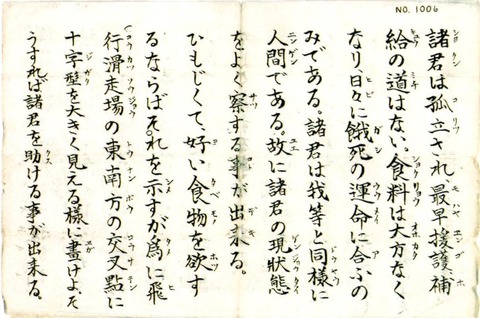 NO. 1006
諸君は孤立され、最早援護、補
給の道はない。食料は大方なく
なり、日々に餓死の運命に合ふの
みである。諸君は我等と同様に
人間である。故に諸君の現狀態
をよく察する事が出来る。
ひもじくて、好い食物を欲す
るならばそれを示すが爲に飛
行滑走場の東南方の交叉點に
十字型を大きく見える様に畫けよ、そ
うすれば諸君を助ける事が出来る。